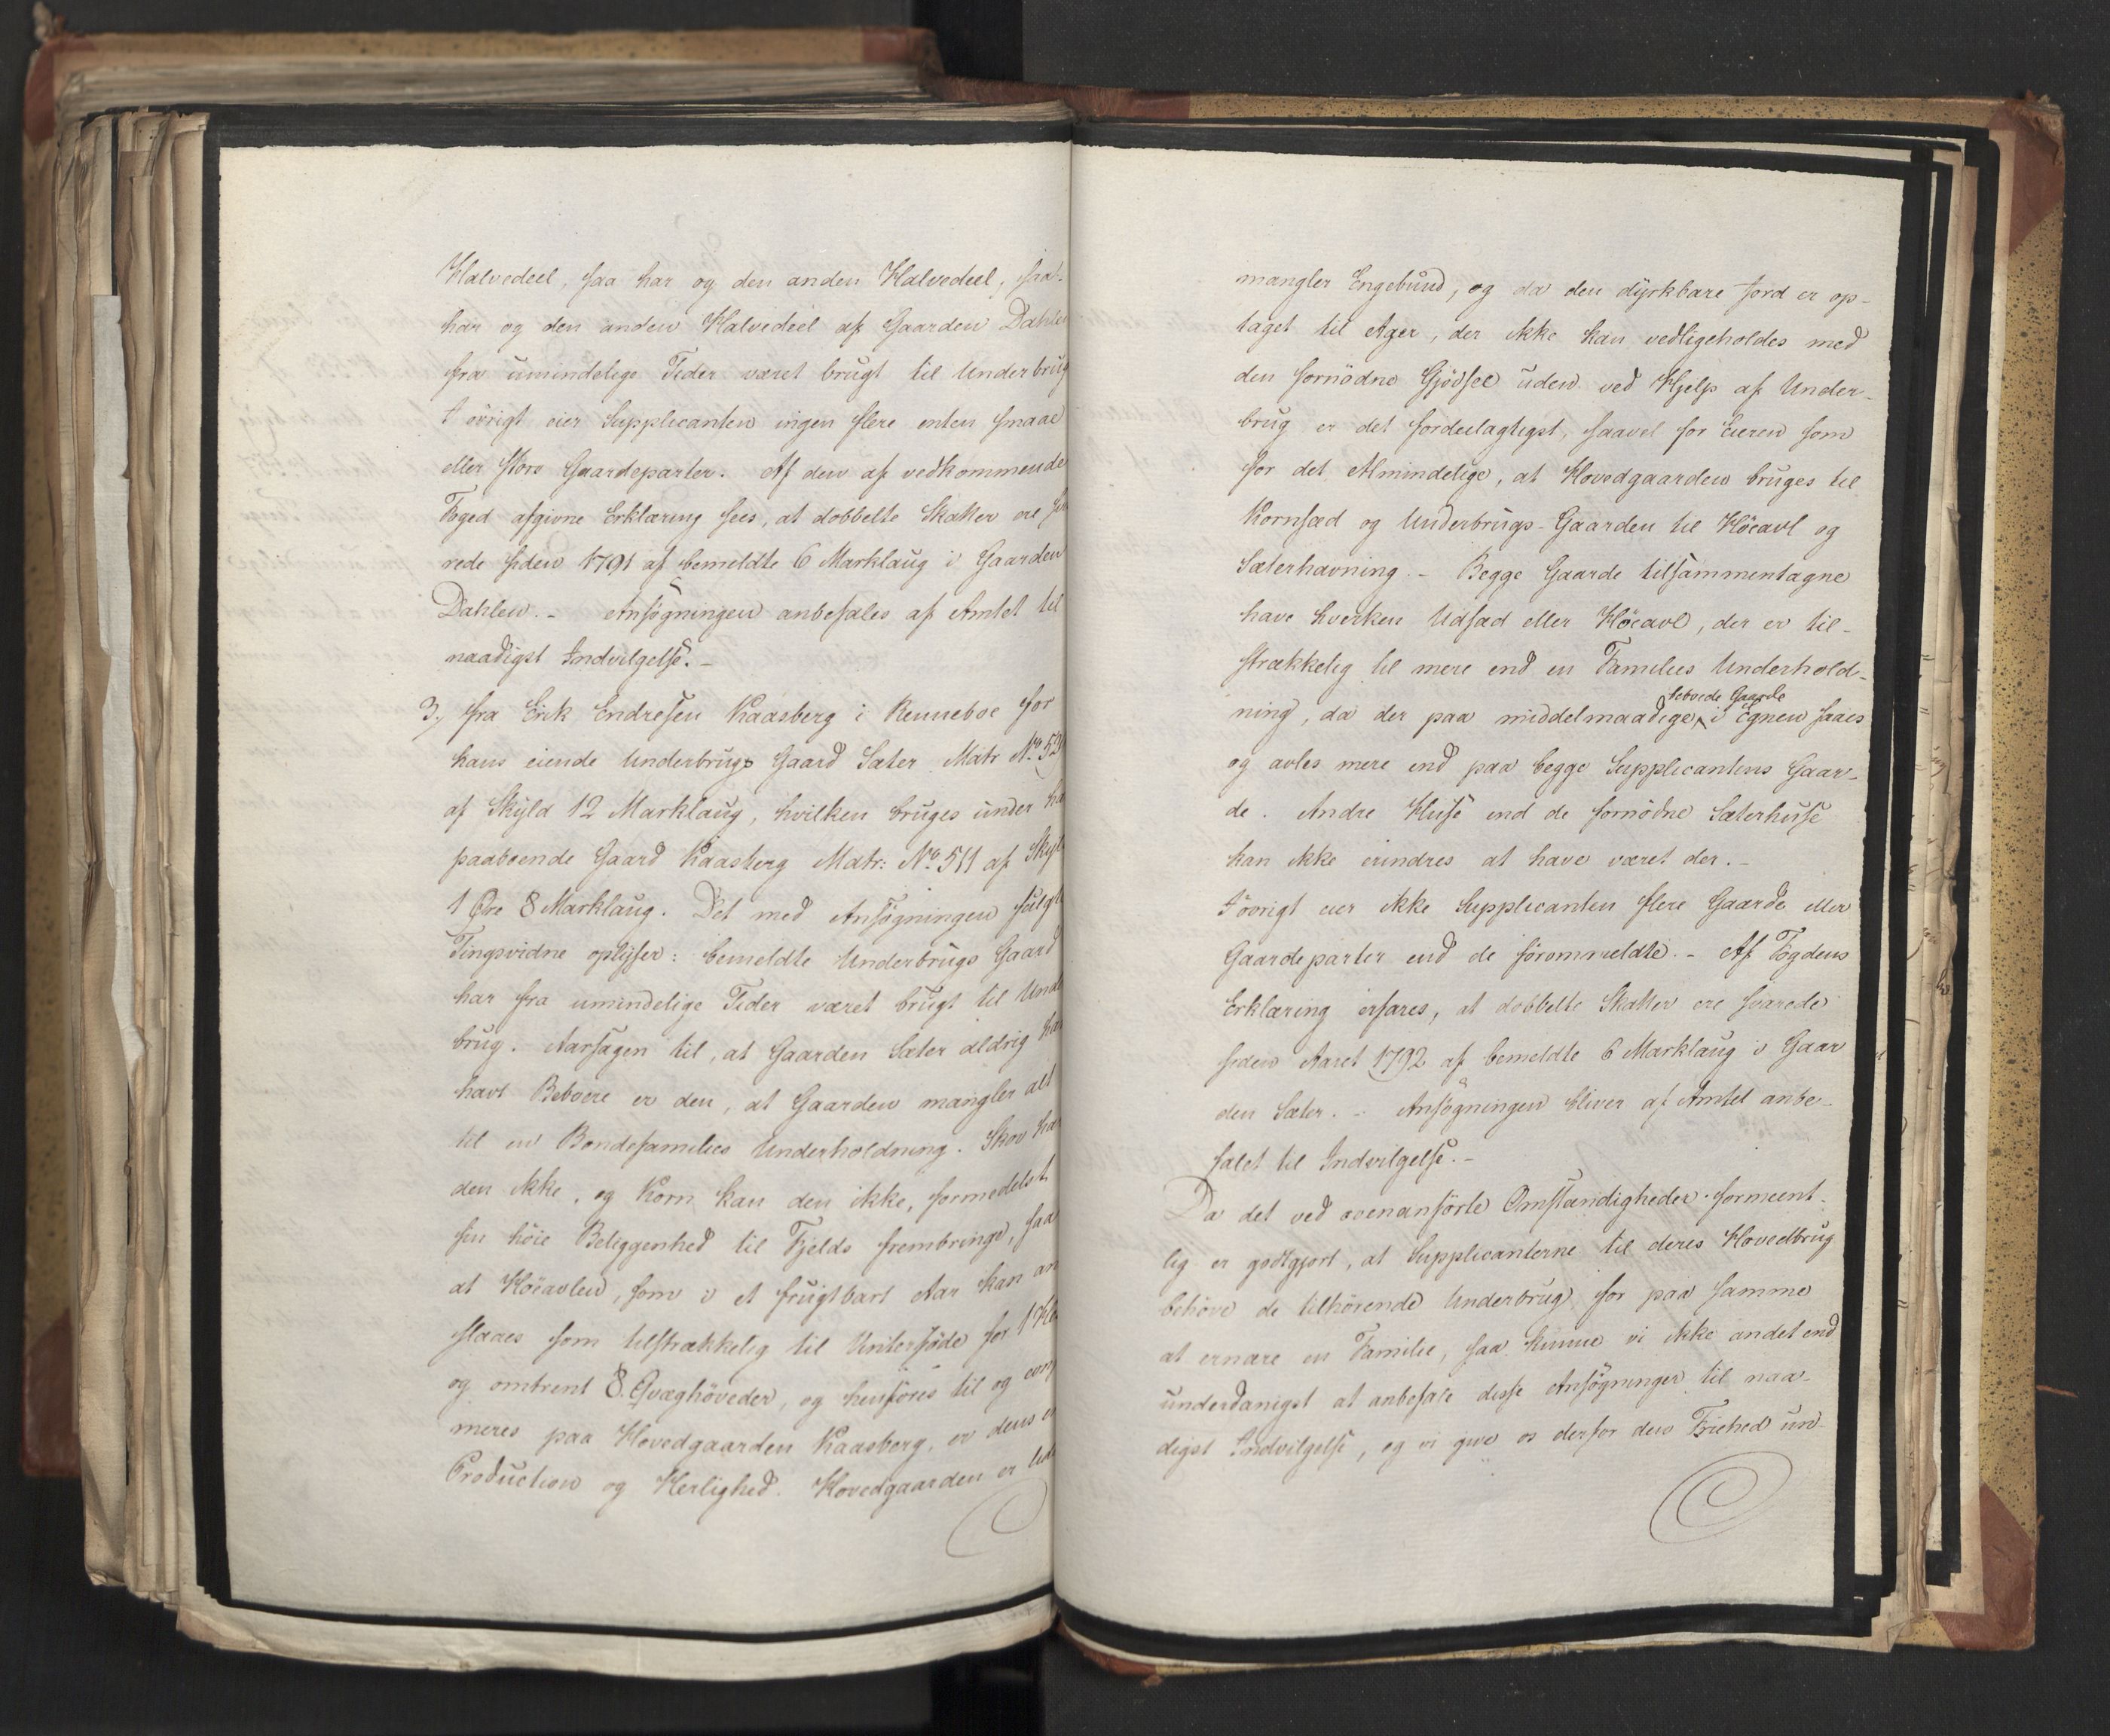 Halvedeel, saa har og den anden Halvedeel, saa
har og den anden Halvedeel af Gaarden Dahlen
fra umindelige Tider været brugt til Underbrug
I øvrigt eier Supplicanten ingen flere enten smaae
eller store Gaardeparter. Af den af vedkommende
Foged afgivne Erklæring sees, at dobbelte Skatter ere
rede siden 1791 af bemeldte 6 Marklaug i Gaarden
Dahlen. - Ansøgningen anbefales af Amtet til
naadigst Indvilgelse. -
3, fra Erik Endresen Kaasberg i Renneboe for
hans eiende Underbrugs Gaard Sæter Matr No 52
af Skyld 12 Marklaug, hvilken bruges under
paaboende Gaard Kaasberg Matr: No 511 af Skyl
1 Øre 8 Marklaug. Det med Ansøgningen fulgte
Tingsvidne oplyser: bemeldte Underbrugs Gaard
har fra umindelige Tider været brugt til Unde
brug. Aarsagen til, at Gaarden Sæter aldrig har
havt Beboere er den, at Gaarden mangler alt
til en Bondefamilies Underholdning. Skov har
den ikke, og Korn kan den ikke, formedelst
sin høie Beliggenhed til Fjelds frembringe, saa
at Høeavlen, som i et frugtbart Aar kan an
slaaes som tilstrækkelig til Vinterføde for 1
og omtrent 8 Qvæghøveder, og henføres til og con
meres paa Hovedgaarden Kaasberg, er dens
Production og Herlighed. Hovedgaarden er
mangler Engebund, og da den dyrkbare Jord er op-
taget til Ager, der ikke kan vedligeholdes med
den fornødne Gjødsel uden ved Hjelp af Under-
brug er det fordeelagtigst, saavel for Eieren som
for det Almindelige, at Hovedgaarden bruges til
Kornsæd og Underbrugs-Gaarden til Høeavl og
Sæterhavning. - Begge Gaarde tilsammentagne
have hverken Udsæd eller Høeavl, der er til-
strækkelig til mere end en Families Underhold-
beboede Gaarde
ning, da der paa middelmaadige i Egnen saaes
og avles mere end paa begge Supplicantens Gaar-
de. Andre Huse end de fornødne Sæterhuse
kan ikke erindres at have været der. -
I øvrigt eier ikke Supplicanten flere Gaarde eller
Gaardeparter end de forommeldte. - Af Fogdens
Erklæring erfares, at dobbelte Skatter ere svarede
siden Aaret 1792 af bemeldte 6 Marklaug i Gaar
den Sæter. - Ansøgningen bliver af Amtet anbe-
falet til Indvilgelse. -
Da det ved ovenanførte Omstændigheder formeent-
lig er godtgjort, at Supplicanterne til deres Hovedbrug
behøve de tilhørende Underbrug for paa samme
at ernære en Familie, saa kunne vi ikke andet end
underdanigst at anbefale disse Ansøgninger til naa-
digst Indvilgelse, og vi give os derfor den Friehed un-